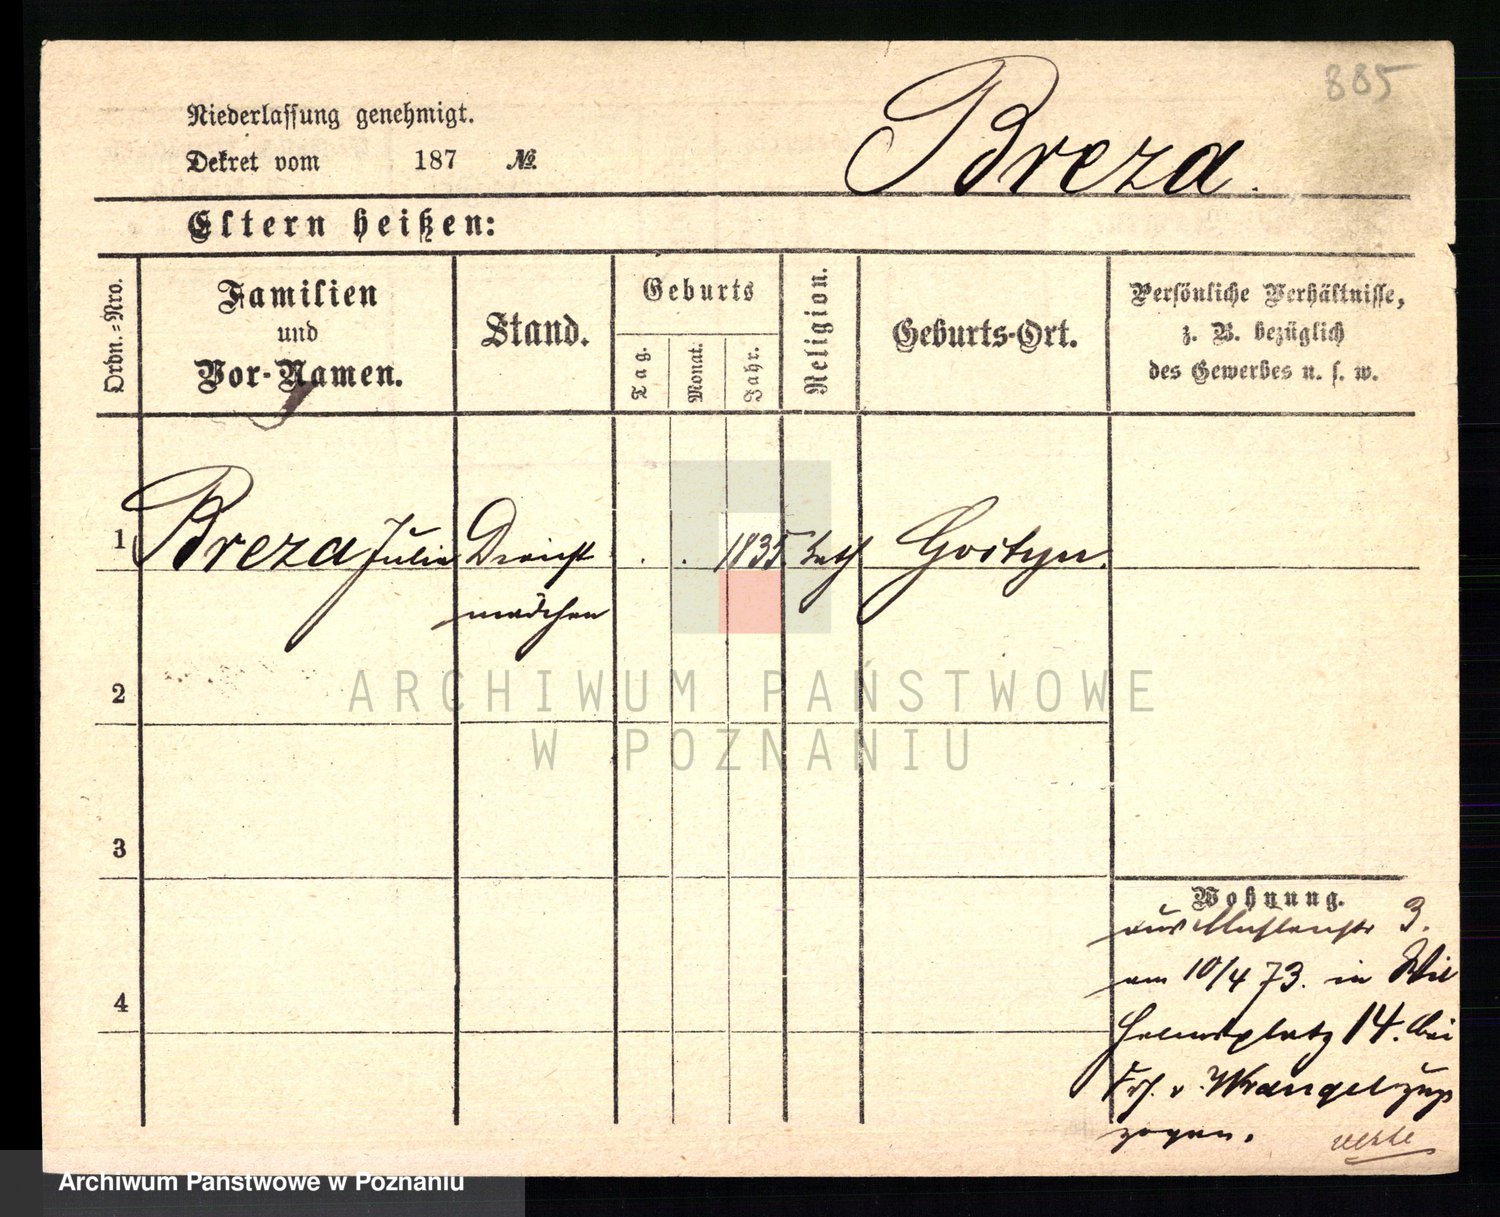 885
Niederlassung genehmigt.
Breza.
Dekret vom 187 №
Eltern heißen:
Ordn.=Nro.
Familien
und
Vor-Namen.
Stand.
Geburts
Tag.
Monat.
Jahr.
Religion.
Geburts-Ort.
Persönliche Verhältnisse,
z. B. bezüglich
des Gewerbes u. s. w.
1 Breza Julie Dienst . . 1835 kath Gostyn.
mädchen
2
ARCHIWUM PAŃSTWOWE
W POZNANIU
3
4
Wohnung.
aus Muhlenstr 3.
am 10/4 73. in Wil
helmsplatz 14. bei
v. Wrangel zuge
zogen.
Archiwum Państwowe w Poznaniu